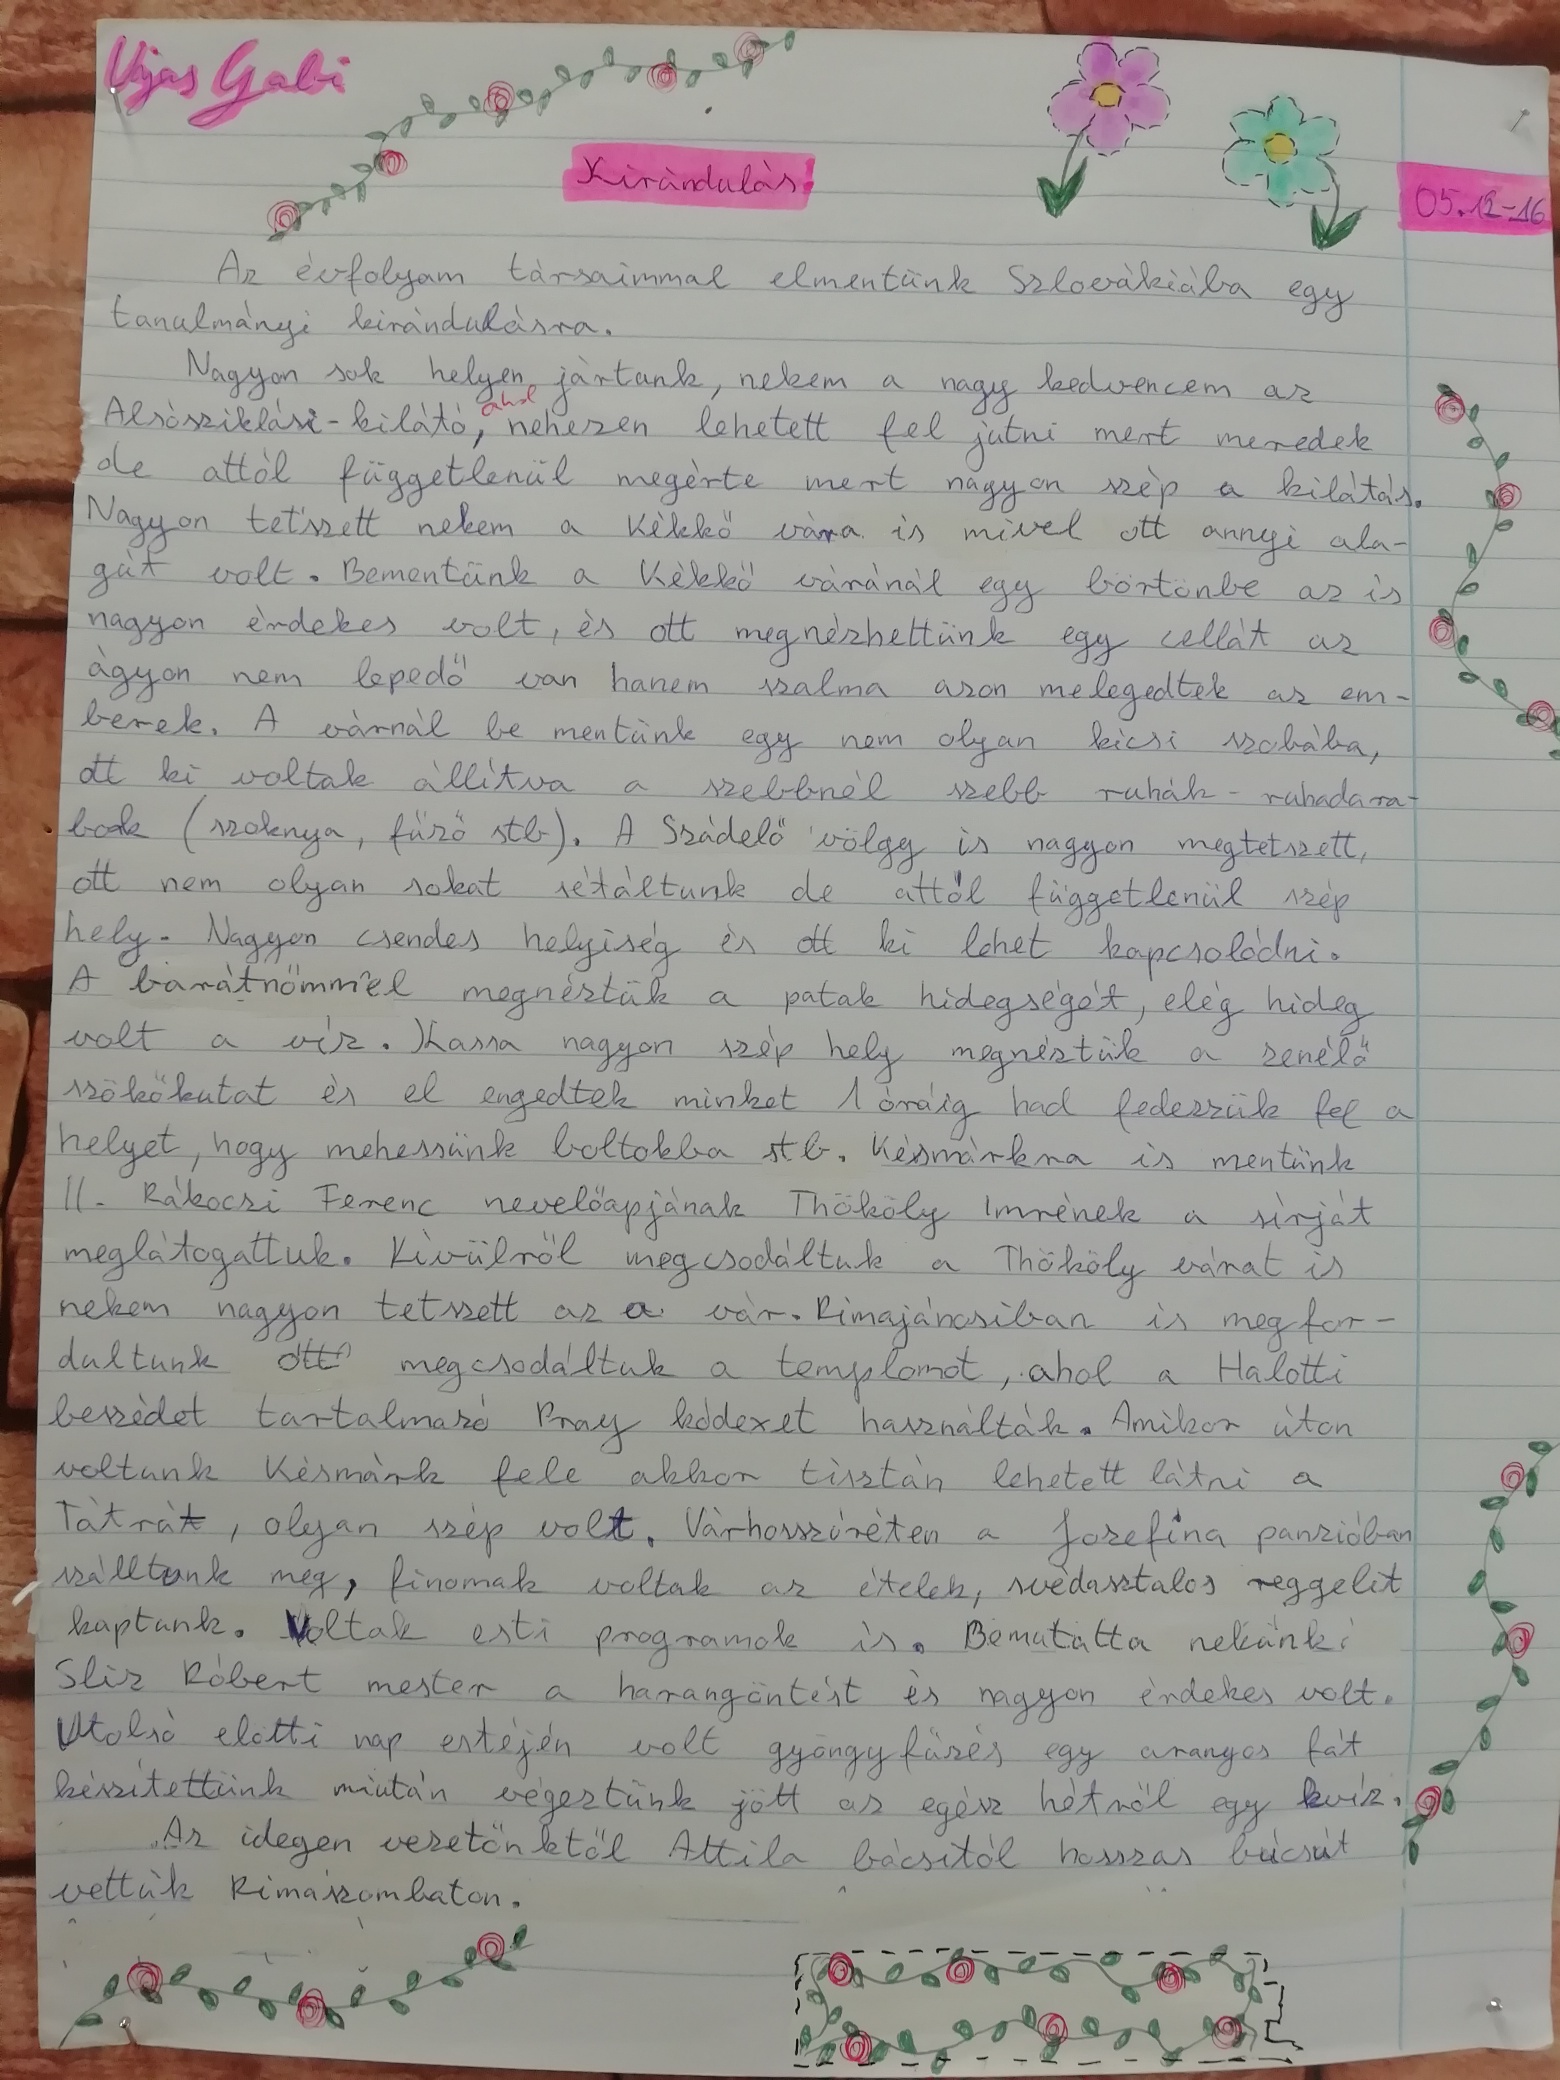 Vajas Gabi
Kirándulás
05.12-16
Az évfolyam társaimmal elmentünk Szlovákiába egy
tanulmányi kirándulásra.
Nagyon sok helyen jártunk, nekem a nagy kedvencem az
ahol
Alsósziklási-kilátó, nehezen lehetett fel jutni mert meredek
de attól függetlenül megérte mert nagyon szép a kilátás.
Nagyon tetszett nekem a Kékkő vára is mivel ott annyi ala-
gút volt. Bementünk a Kékkő váránál egy börtönbe az is
nagyon érdekes volt, és ott megnézhettünk egy cellát az
ágyon nem lepedő van hanem szalma azon melegedtek az em-
berek. A várnál be mentünk egy nem olyan kicsi szobába,
ott ki voltak állítva a szebbnél szebb ruhák - ruhadara-
bok (szoknya, fűző stb). A Szádelő völgy is nagyon megtetszett,
ott nem olyan sokat sétáltunk de attól függetlenül szép
hely. Nagyon csendes helyiség és ott ki lehet kapcsolódni.
A barátnőmmel megnéztük a patak hidegségét, elég hideg
volt a víz. Kassa nagyon szép hely megnéztük a zenélő
szökőkutat és el engedtek minket 1 óráig had fedezzük fel a
helyet, hogy mehessünk boltokba stb. Késmárkra is mentünk
II. Rákoczi Ferenc nevelőapjának Thököly Imrének a sírját
meglátogattuk. Kívülről megcsodáltuk a Thököly várat is
nekem nagyon tetszett az a vár. Rimajánosiban is megfor-
dultunk ott megcsodáltuk a templomot, ahol a Halotti
beszédet tartalmazó Pray kódexet használták. Amikor úton
voltunk Késmárk fele akkor tisztán lehetett látni a
Tátrát, olyan szép volt. Várhosszúréten a Jozefína panzióban
szálltunk meg, finomak voltak az ételek, svédasztalos reggelit
kaptunk. Voltak esti programok is. Bemutatta nekünk
Sliz Róbert mester a harangöntést és nagyon érdekes volt.
Utolsó előtti nap estéjén volt gyöngyfűzés egy aranyos fát
készítettünk miután végeztünk jött az egész hétről egy kvíz.
Az idegen vezetőnktől Attila bácsitól hosszas búcsút
vettük Rimaszombaton.